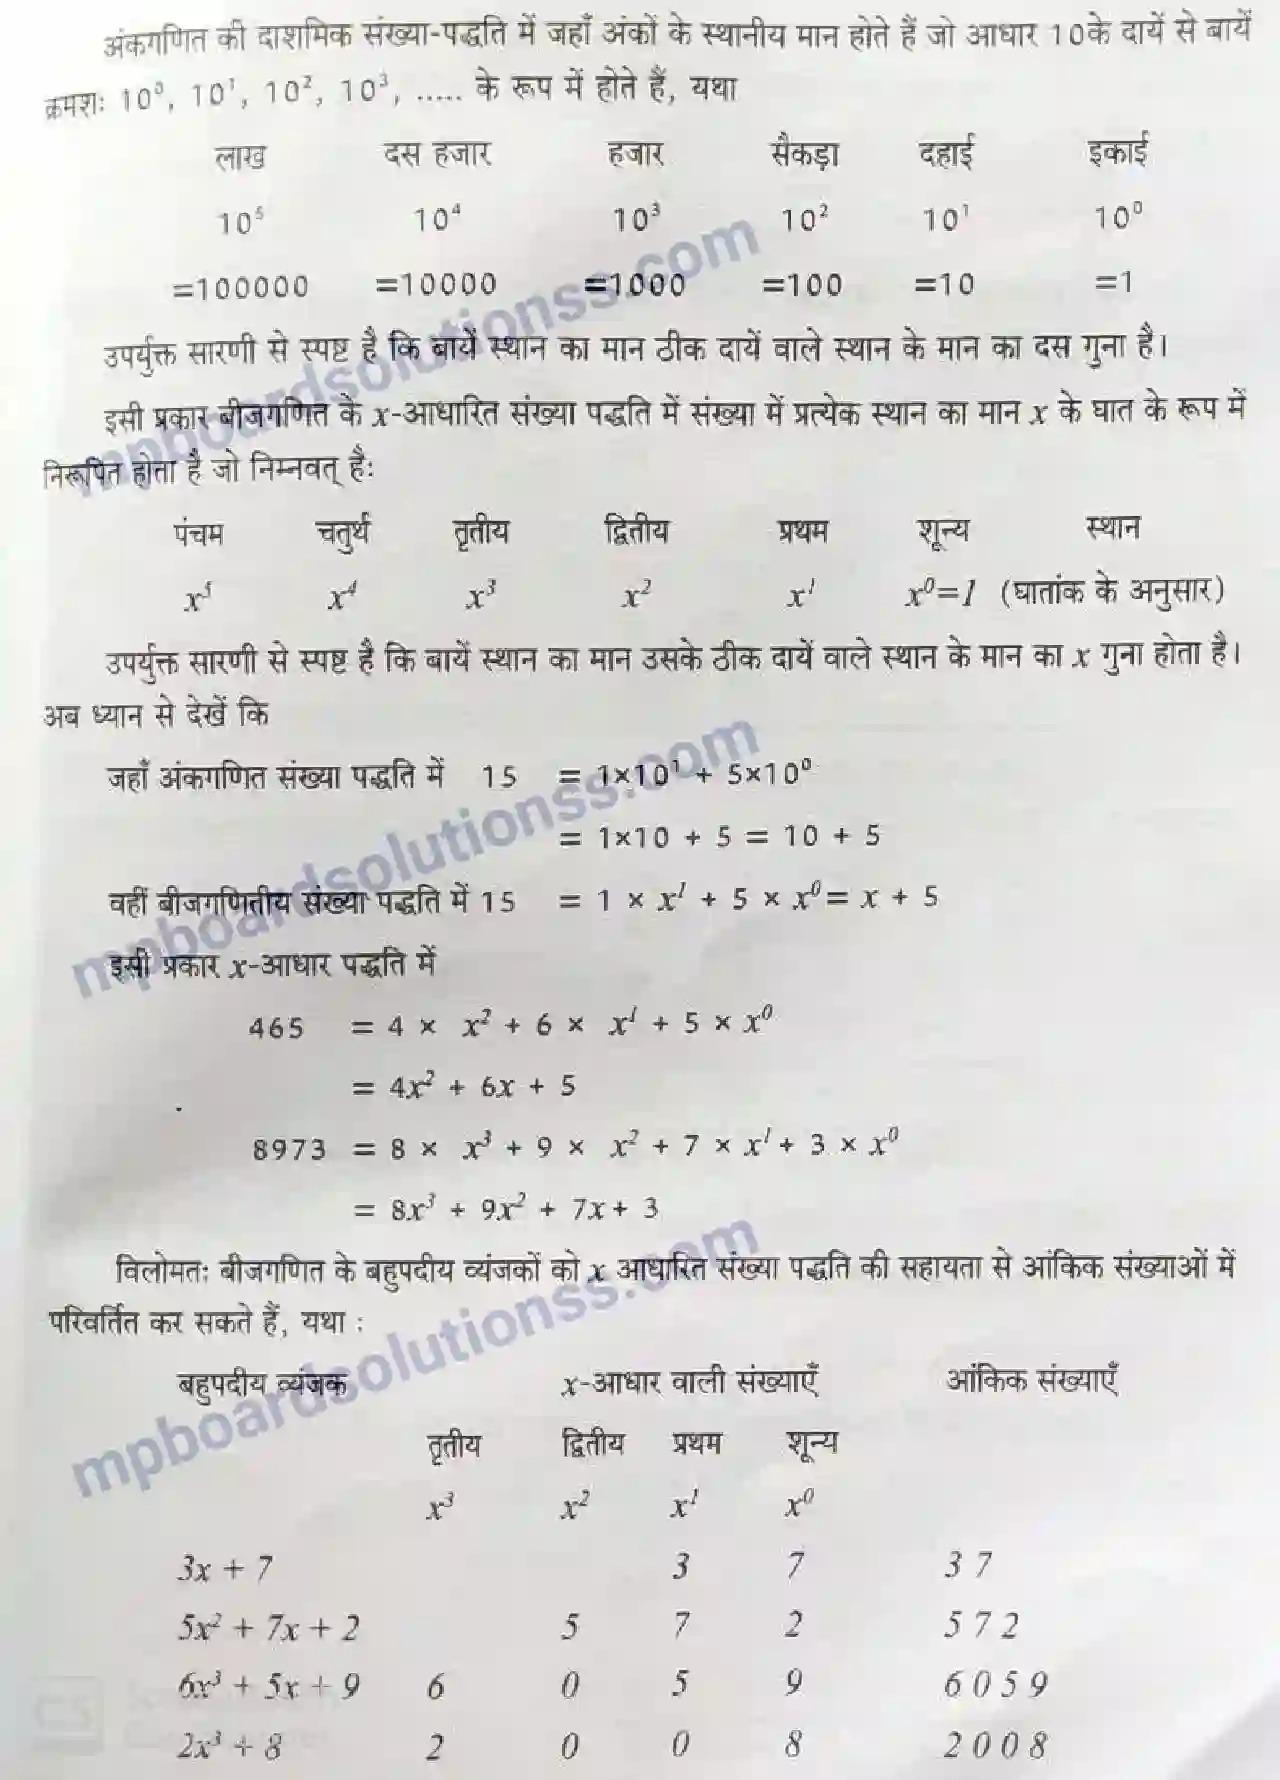 अंकगणित की दाशमिक संख्या-पद्धति में जहाँ अंकों के स्थानीय मान होते हैं जो आधार 10के दायें से बायें
क्रमशः 10⁰, 10¹, 10², 10³, ..... के रूप में होते हैं, यथा
लाख दस हजार हजार सैकड़ा दहाई इकाई
10⁵ 10⁴ 10³ 10² 10¹ 10⁰
=100000 =10000 =1000 =100 =10 =1
उपर्युक्त सारणी से स्पष्ट है कि बायें स्थान का मान ठीक दायें वाले स्थान के मान का दस गुना है।
इसी प्रकार बीजगणित के x-आधारित संख्या पद्धति में संख्या में प्रत्येक स्थान का मान x के घात के रूप में
निरूपित होता है जो निम्नवत् है:
पंचम चतुर्थ तृतीय द्वितीय प्रथम शून्य स्थान
x⁵ x⁴ x³ x² x¹ x⁰=1 (घातांक के अनुसार)
उपर्युक्त सारणी से स्पष्ट है कि बायें स्थान का मान उसके ठीक दायें वाले स्थान के मान का x गुना होता है।
अब ध्यान से देखें कि
जहाँ अंकगणित संख्या पद्धति में 15 = 1×10¹ + 5×10⁰
= 1×10 + 5 = 10 + 5
वहीं बीजगणितीय संख्या पद्धति में 15 = 1 × x¹ + 5 × x⁰= x + 5
इसी प्रकार x-आधार पद्धति में
465 = 4 × x² + 6 × x¹ + 5 × x⁰
= 4x² + 6x + 5
8973 = 8 × x³ + 9 × x² + 7 × x¹ + 3 × x⁰
= 8x³ + 9x² + 7x + 3
विलोमतः बीजगणित के बहुपदीय व्यंजकों को x आधारित संख्या पद्धति की सहायता से आंकिक संख्याओं में
परिवर्तित कर सकते हैं, यथा :
बहुपदीय व्यंजक x-आधार वाली संख्याएँ आंकिक संख्याएँ
तृतीय द्वितीय प्रथम शून्य
x³ x² x¹ x⁰
3x + 7 3 7 3 7
5x² + 7x + 2 5 7 2 5 7 2
6x³ + 5x + 9 6 0 5 9 6 0 5 9
2x³ + 8 2 0 0 8 2 0 0 8
mpboardsolutionss.com
mpboardsolutionss.com
mpboardsolutionss.com
CS